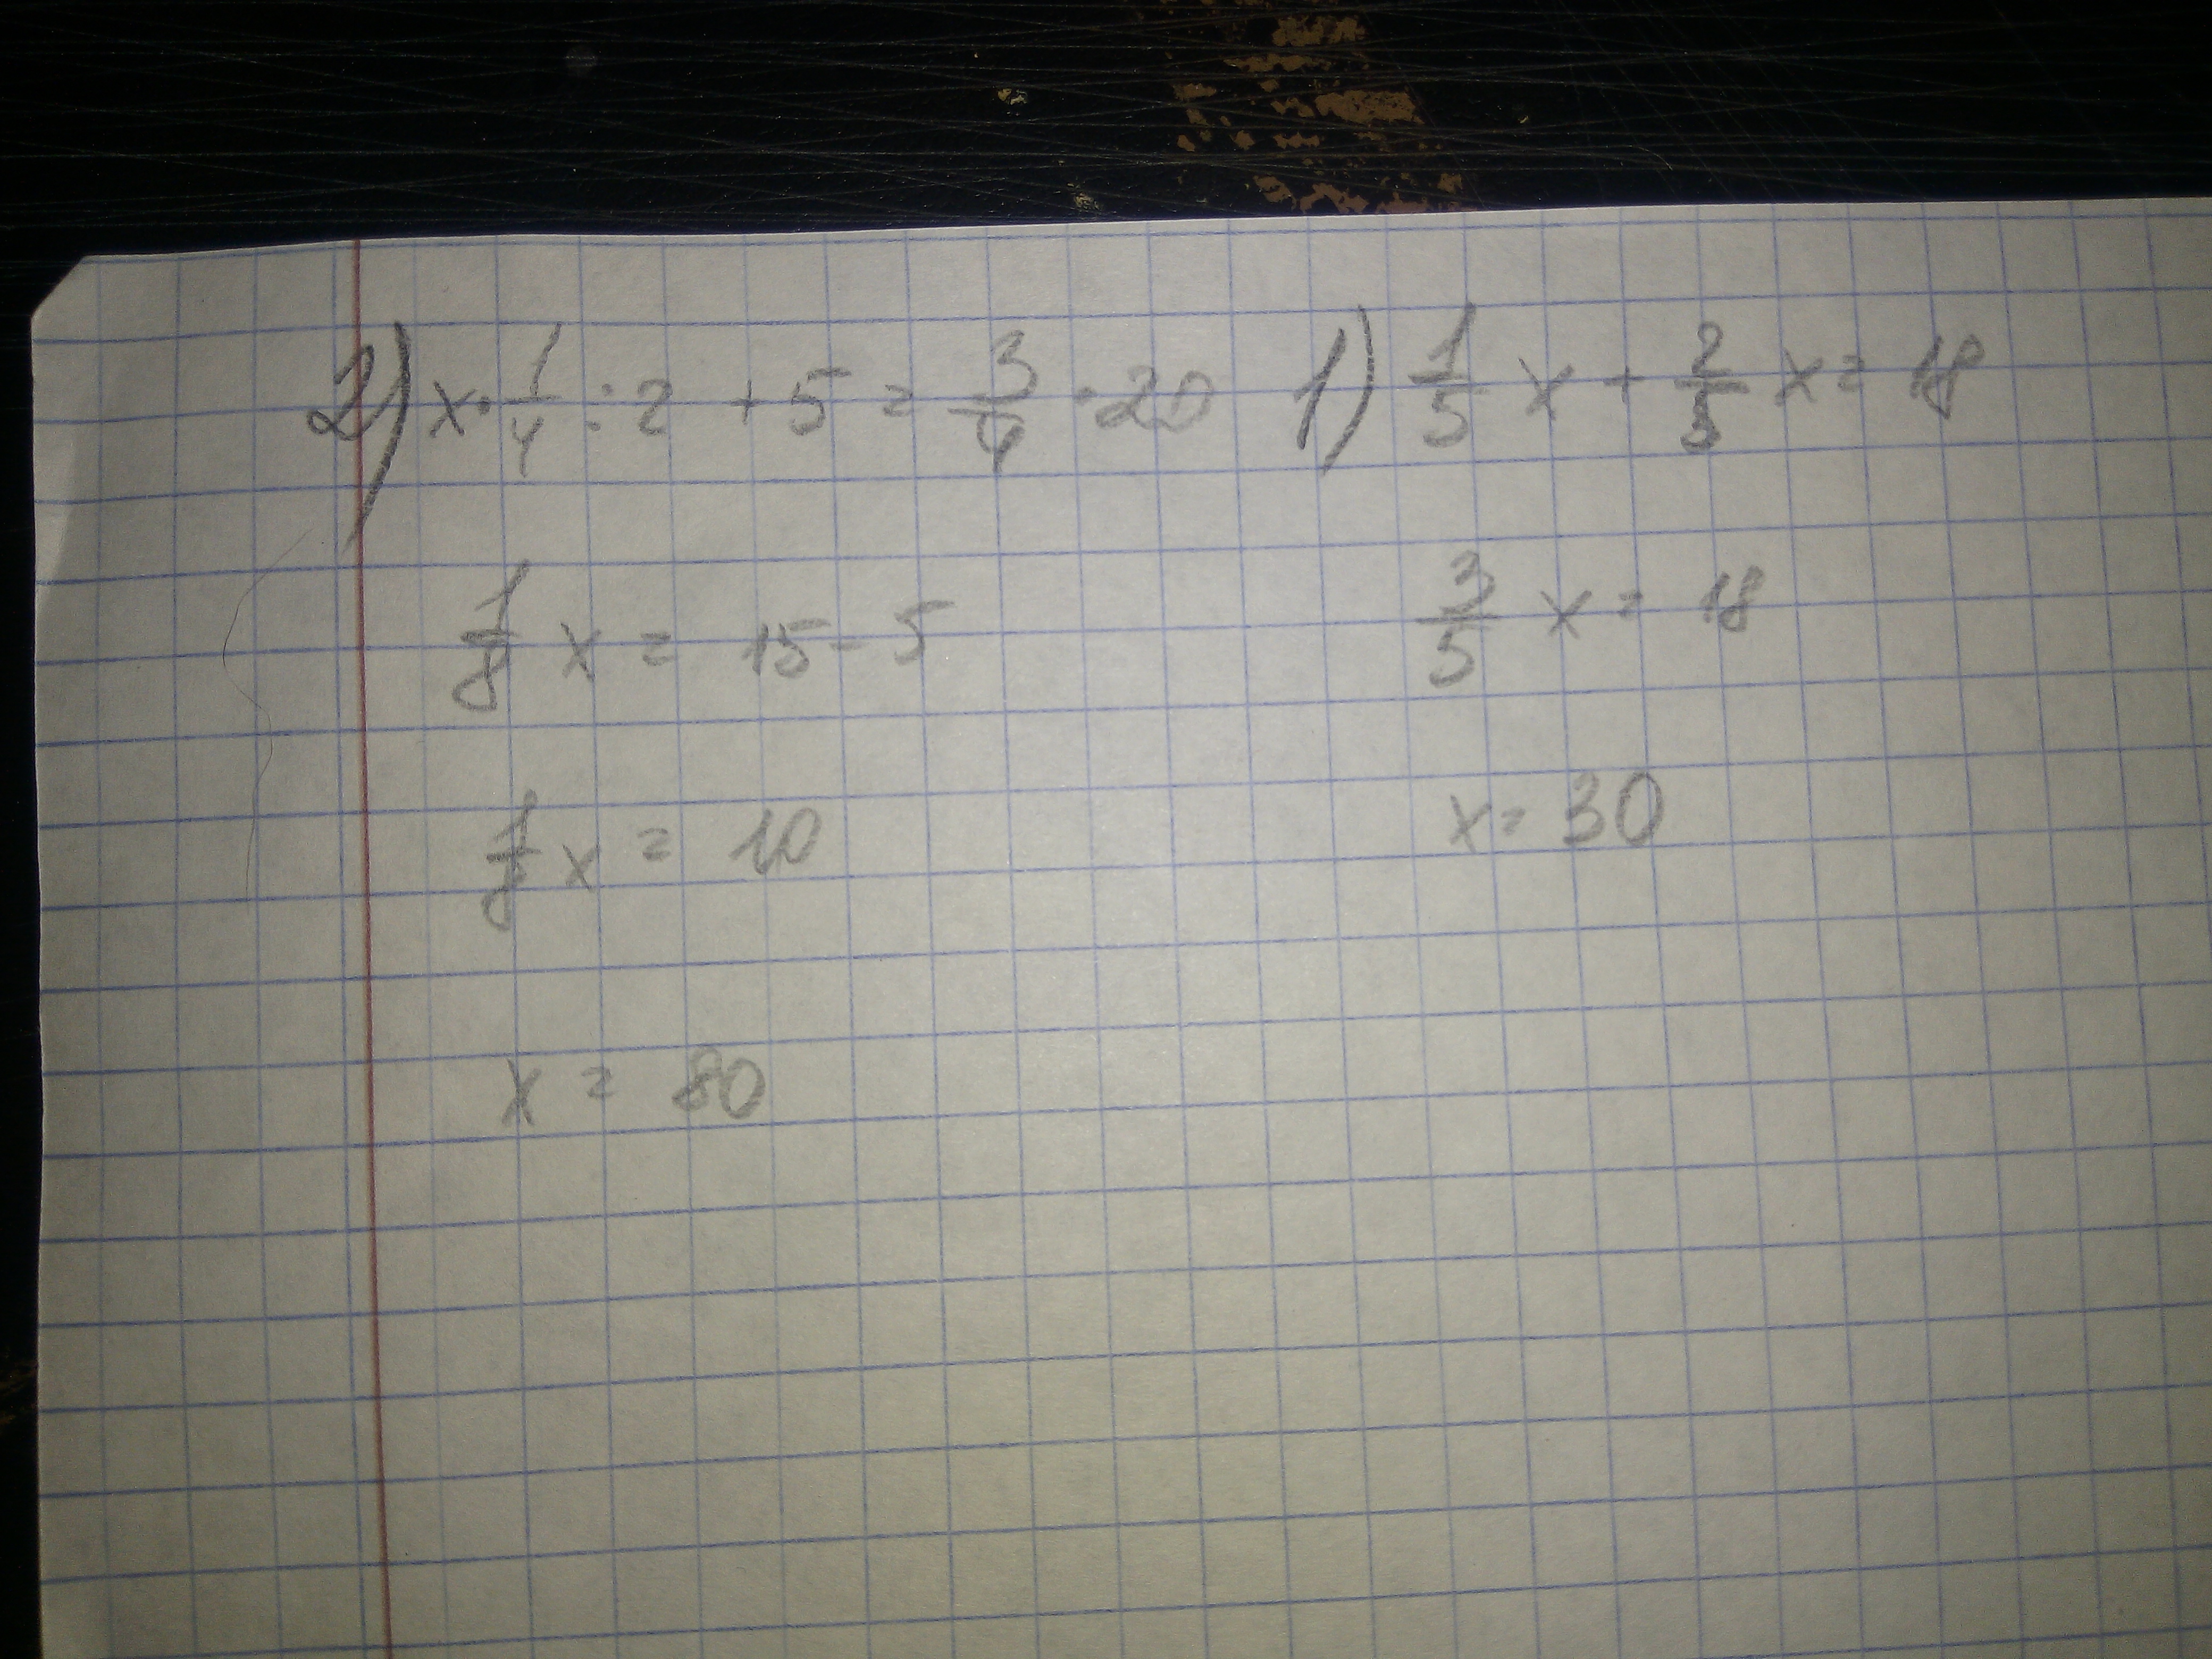 2) x · 1/4 : 2 + 5 = 3/4 · 20
1/8 x = 15 - 5
1/8 x = 10
x = 80
1) 1/5 x + 2/5 x = 18
3/5 x = 18
x = 30